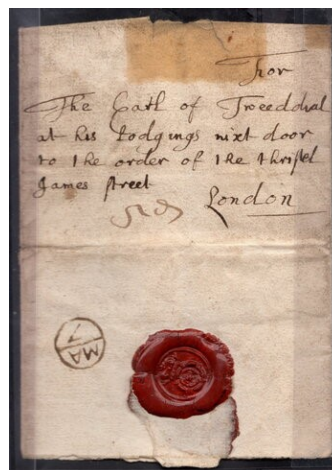 For
The Earl of Tweeddal
at his Lodgings nixt door
to the order of the thristel
James street
London
MA
7